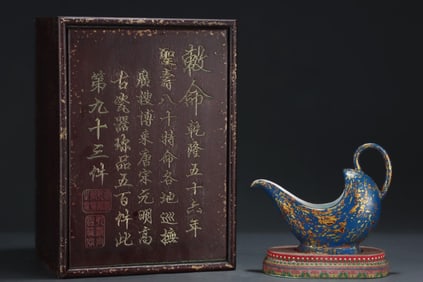 敕命乾隆五十六年
聖壽八十特命各地巡撫
廣搜博采唐宋元明高
古瓷器珍品五百件此
第九十三件